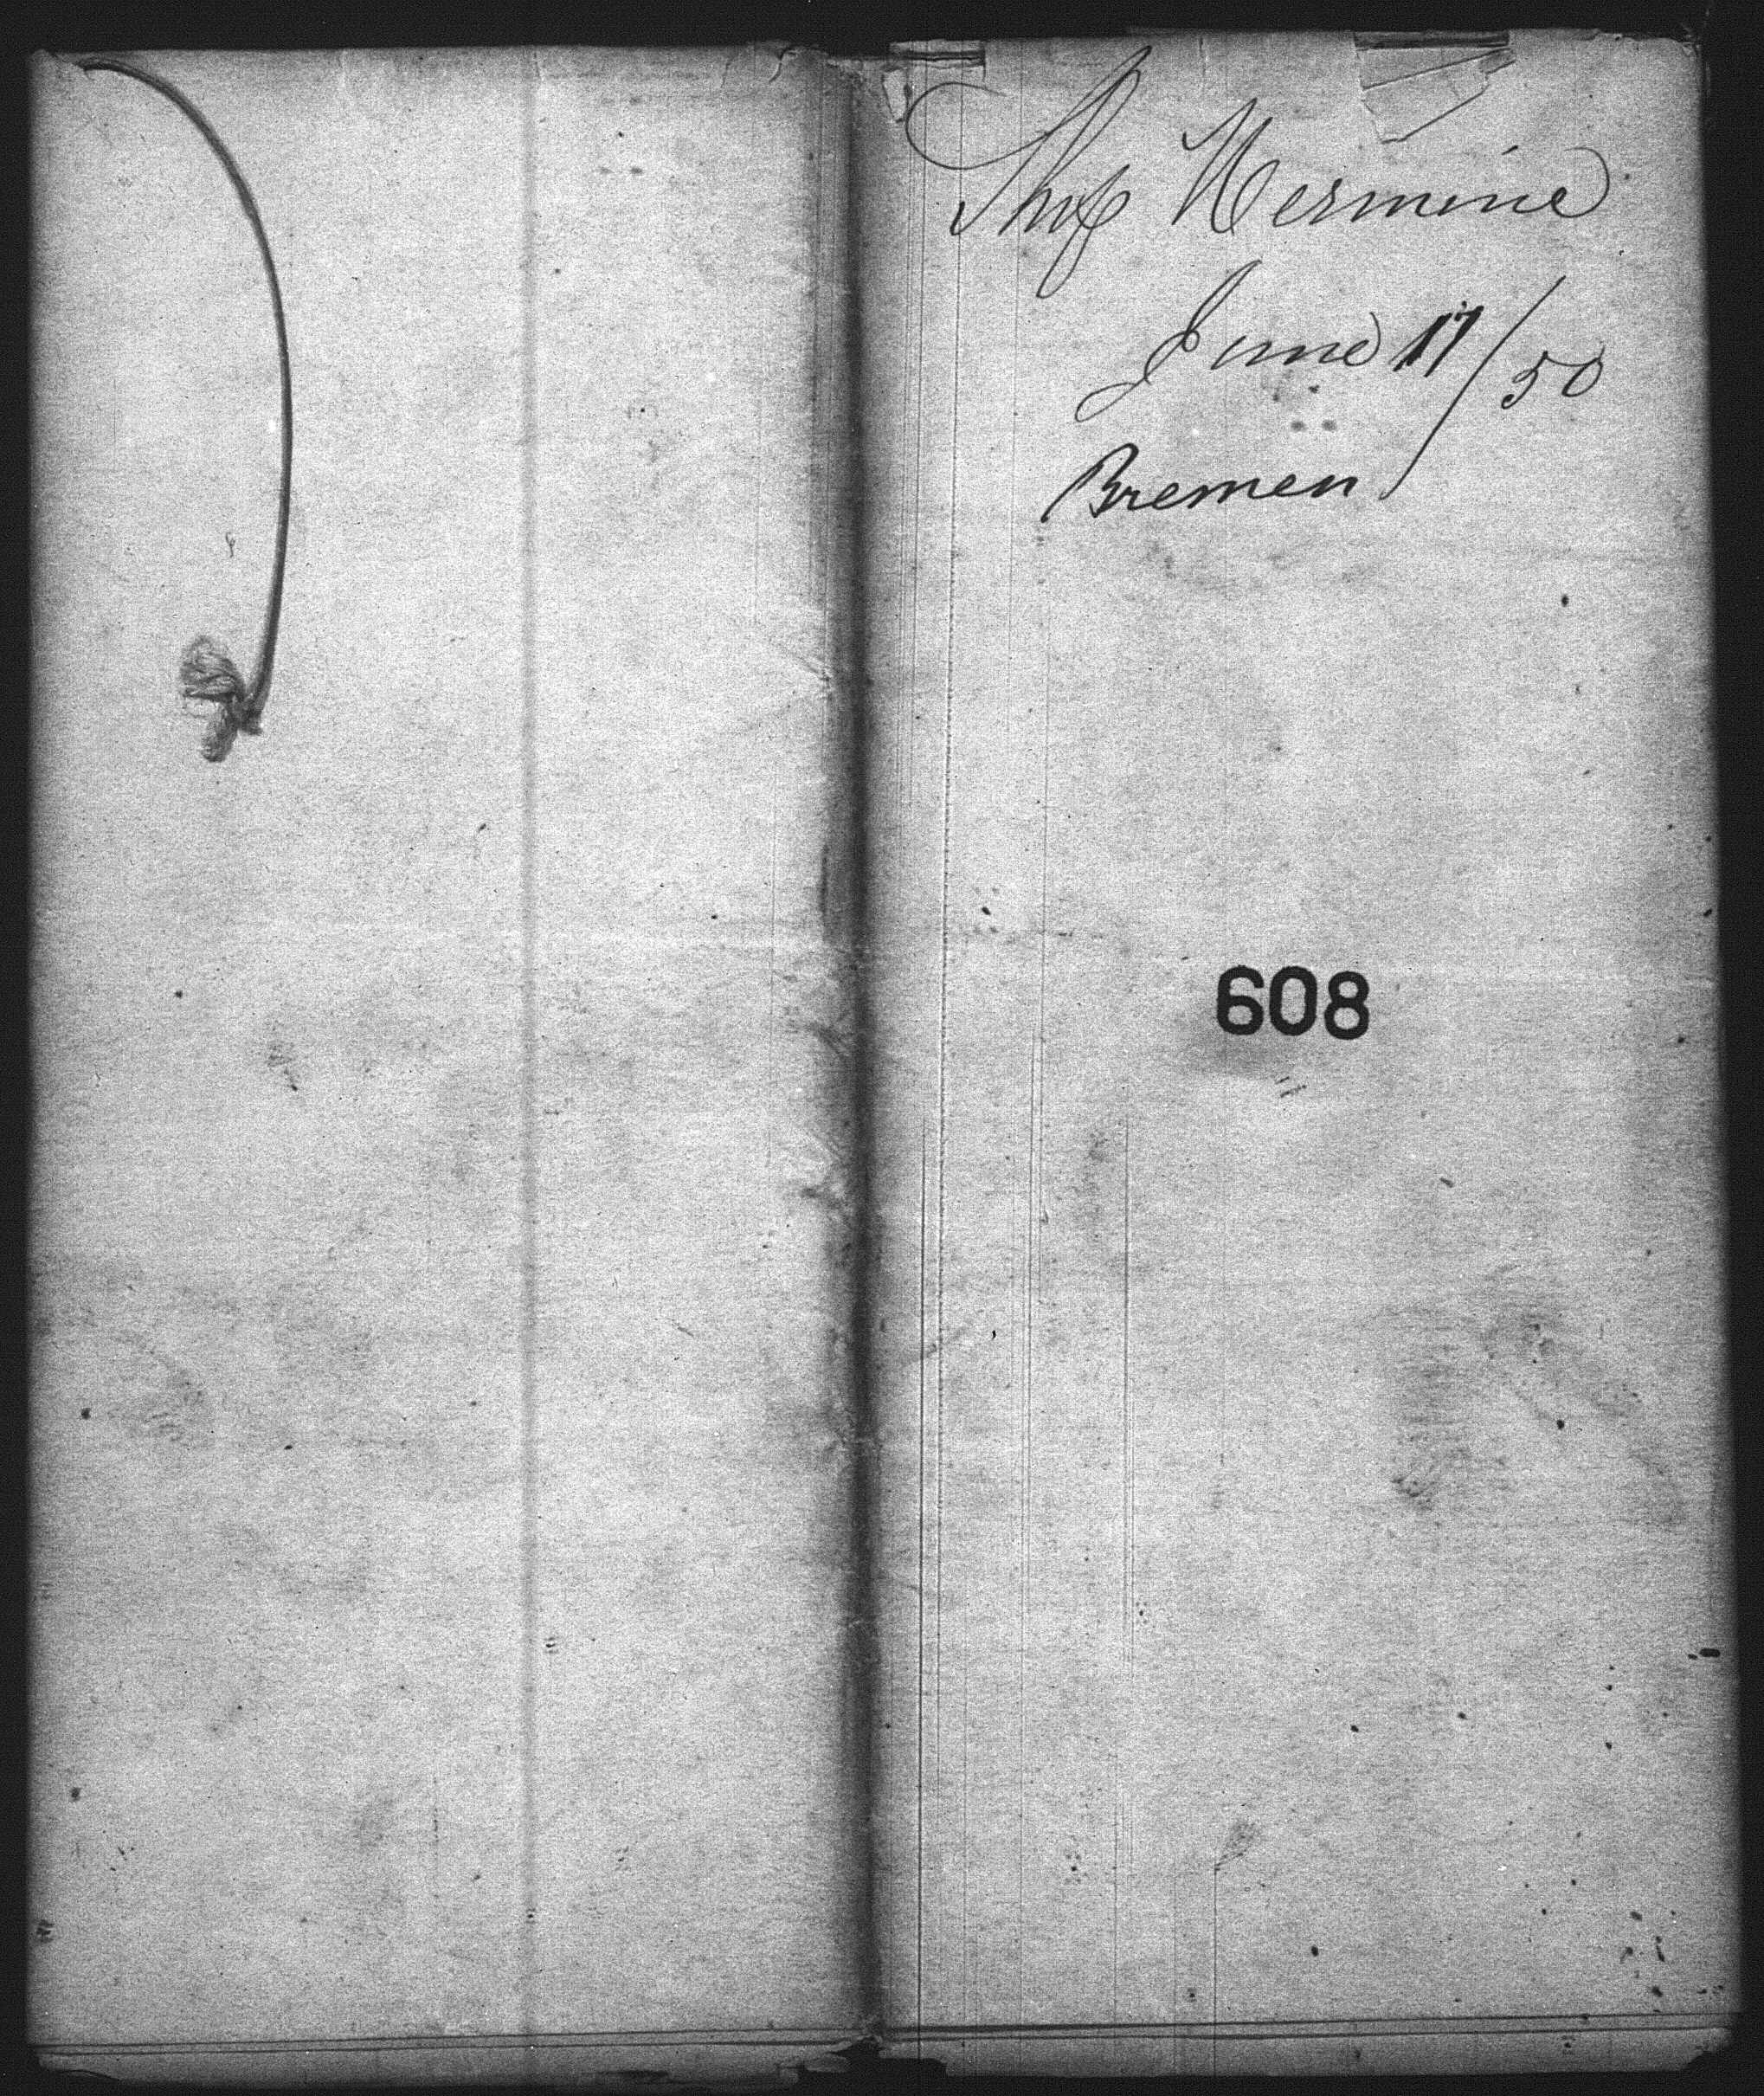 Ship Hermine
June 17/50
Bremen
608